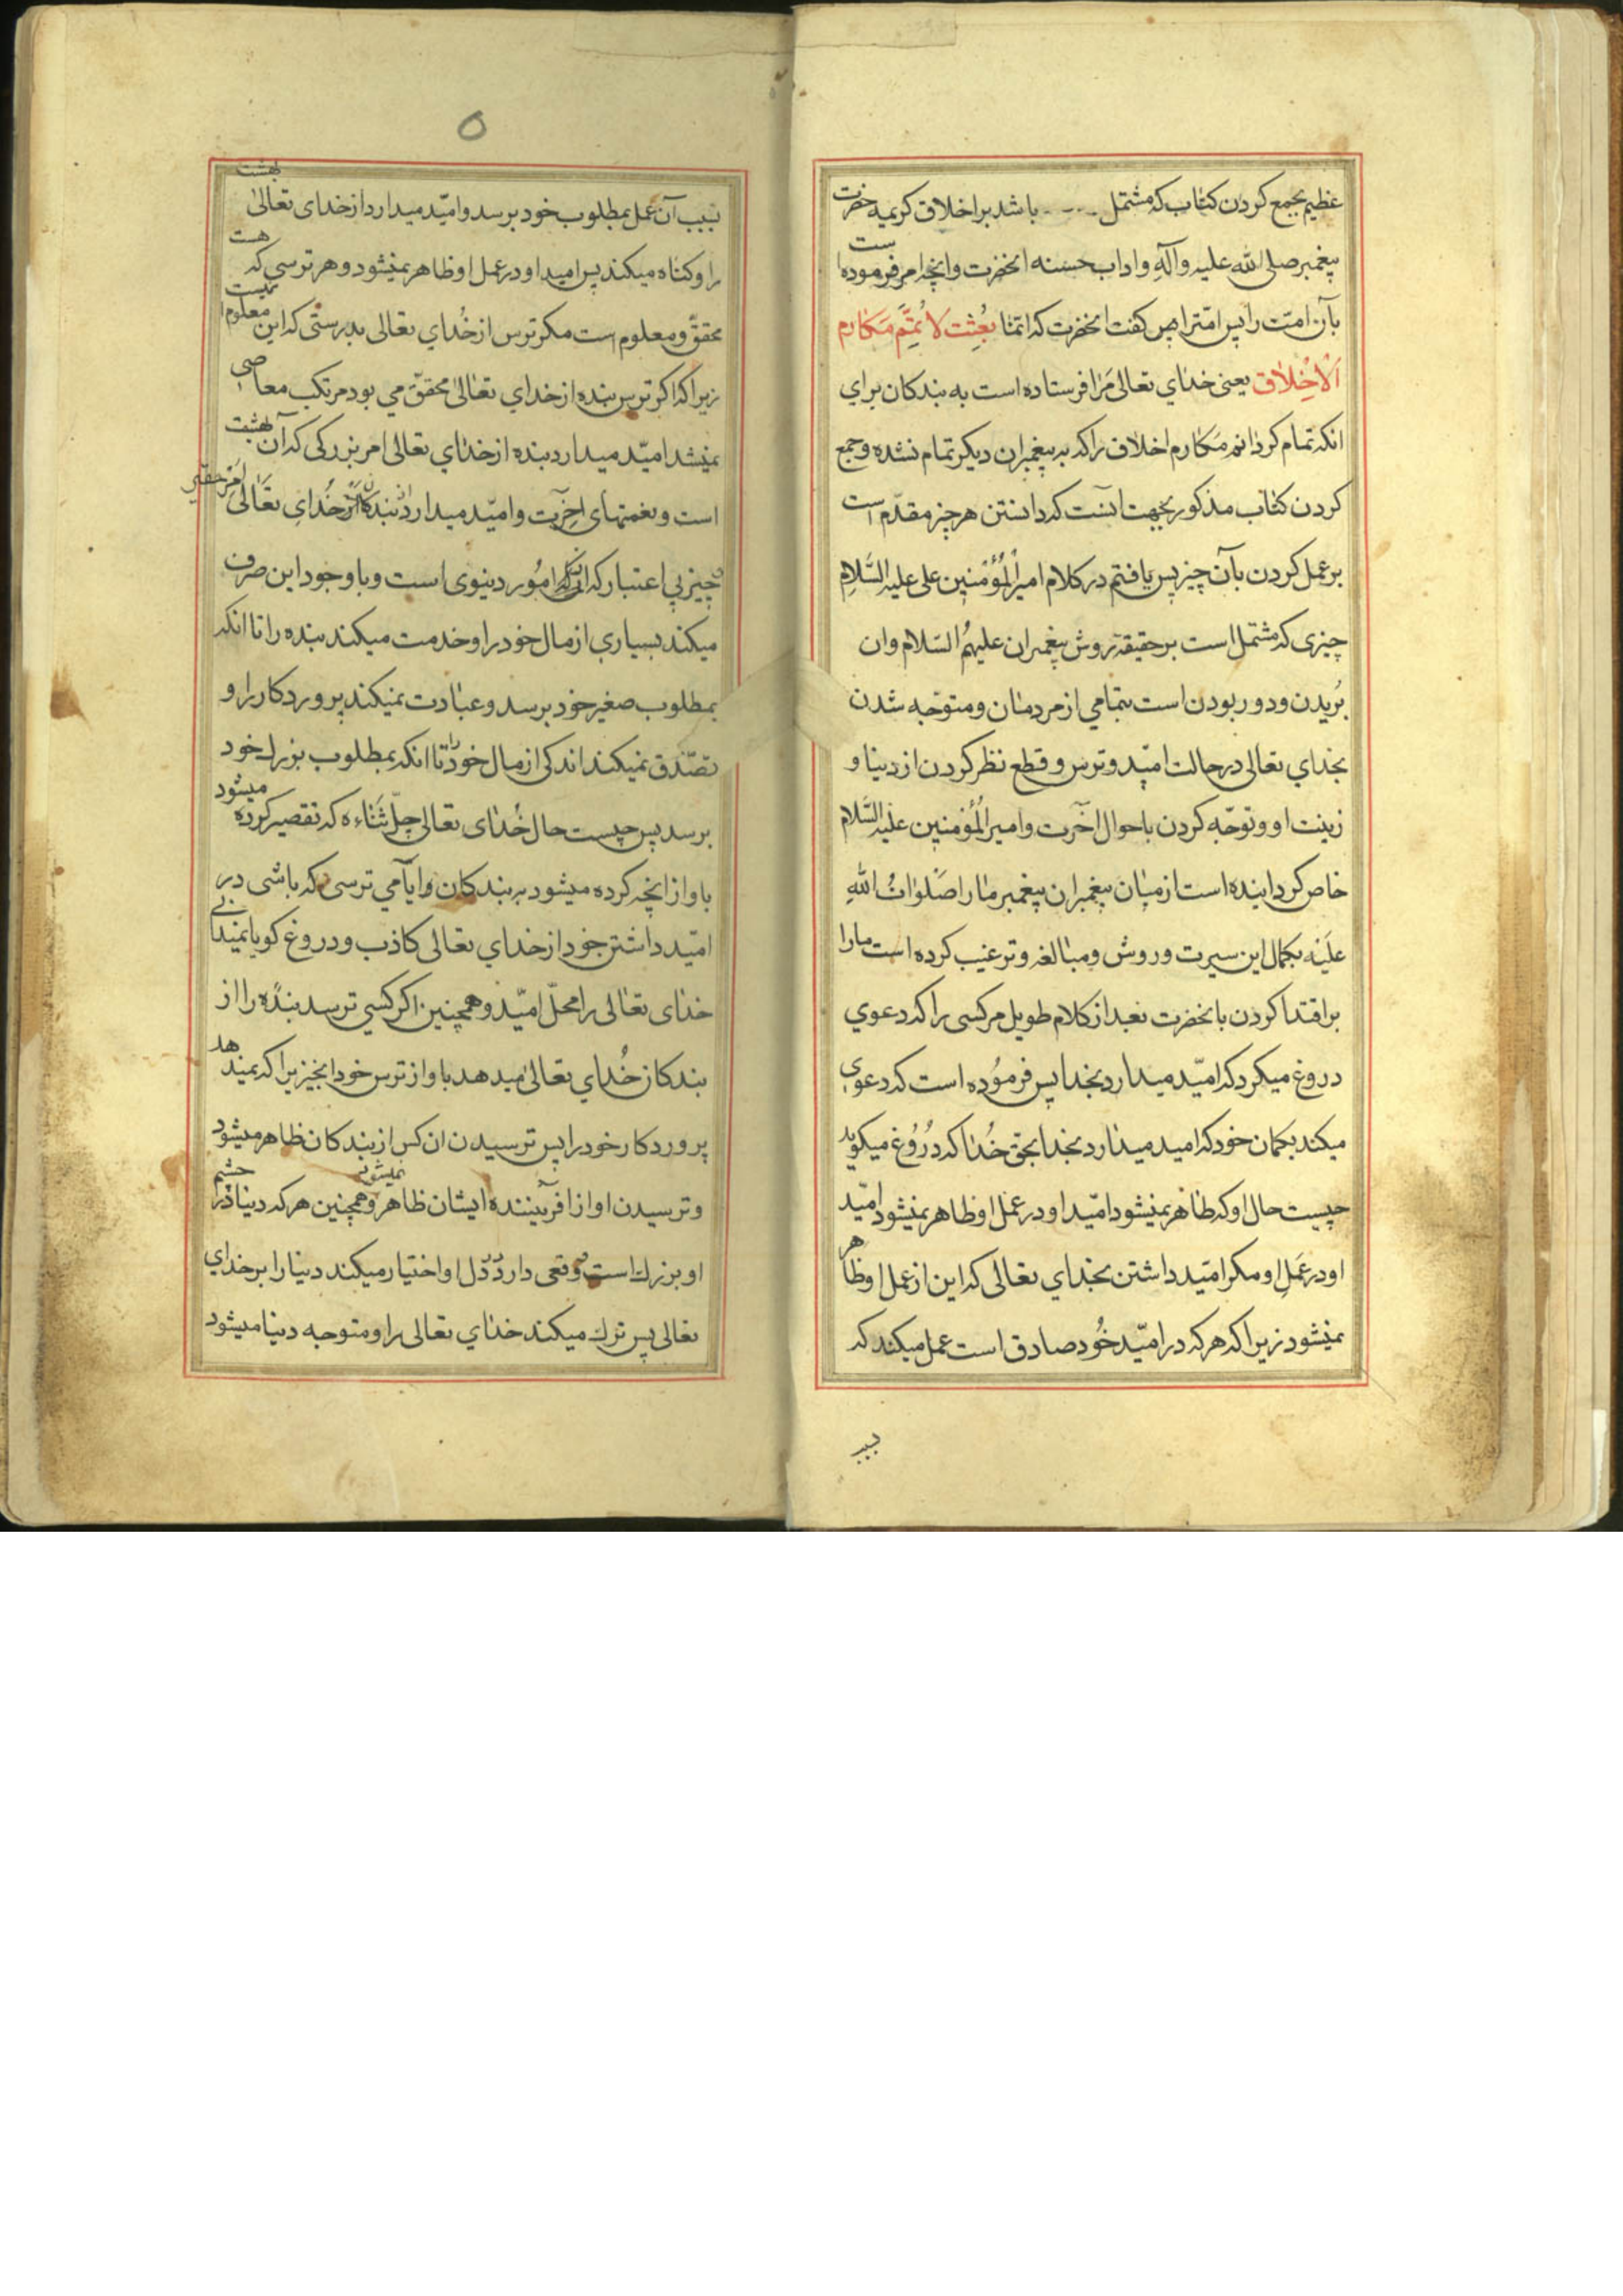 عظیم بجمع کردن کتاب که مشتمل باشد بر اخلاق کریمه حضرت
پیغمبر صلی الله علیه وآله واداب حسنه انحضرت وانچه امر فرموده است
بآن امّت را پس کفت انحضرت که انّمٰا بُعِثِت لاُتِمَّم مَکٰارم
اَلْاَخْلاٰق یعنی خدٰاي تعالی مَرٰا فرستاده است به بندکان براي
انکه تمام کردٰانم مَکٰارم اخلٰاق را که به پیغمبران دیکر تمام نشده وجمع
کردن کتاب مذکور بجهت انست که دانستن هر چیز مقدّم است
بر عمل کردن بآن چیز پس یافتم در کلام امیرالْمُؤْمنین علی علیه السَّلاٰمِ
چیزی که مشتمل است بر حقیقة روش پیغمبران علیهمُ السّلام وان
بُریدن ودور بودن است بتمامي از مردمٰان ومتوّجه شدن
بخدٰاي تعالی در حالت امیّد وترس وقطع نظر کردن از دنیا و
زینت او وتوجّه کردن باحوال اخَرت وامیرالْمُؤمنین علیه السَّلام
خاص کردانیده است از میٰان پیغمبران پیغمبر مٰا را صَلَوٰاتُ اللهِ
عَلَیْه بکمال این سیرت وروش ومبٰالغه وترغیب کرده است ما را
بر اقتدا کردن بانحضرت بعد از کلام طویل مر کسی را که دعوي
دروغ میکرد که امیّد میدارد بخدا پس فرموُده است که دعوی
میکند بکمان خود که امید میدٰارد بخدا بحق خُدٰا که دُرُوُغ میکوید
چیست حال او که ظٰاهر نمیشود امّید او در عَمَل او ظاهر نمیشود امّید
او در عَمَلِ او مکر امیّد داشتن بخدٰاي تعالی که این از عمل او ظاهر
نمیشود زیرا که هر که در امیّد خُود صادق است عمل میکند که
سبب
٥
بسبب آن عمل بمطلوب خود برسد وامیّد میدارد از خدای تعالیٰ بهشت
را وکناه میکند پس امید او در عمل او ظاهر نمیشود وهر ترسی که هست
محقّق ومعلوم است مکر ترس از خُداي تعالی بدرستی که این معلوم نیست
زیرا که اکر ترس بنده از خداي تعٰالیٰ محقّق مي بود مرتکب معاصی
نمیشد امیّد میدارد بنده از خدٰاي تعالی امر بزرکی که آن بهشت
است ونعمتهای اخِرَت وامیّد میدارد از بندکان خُدایِ تعَٰالیٰ امر حقیر
چیز بی اعتبار که اموُر دینوی است وبا وجود این صرف
میکند بسیاري از مال خود را وخدمت میکند بنده را تا انکه
بمطلوب صغیر خود برسد وعبٰادت نمیکند پروردکار را و
تصّدق نمیکند اندکی از مال خود را تا انکه بمطلوب بزرك خود
برسد پس چیست حال خُدٰای تعالی جلّ ثَنٰاءه که تقصیر کرده میشود
باو از انچه کرده میشود به بندکان وایا مي ترسی که باشی در
امیّد داشتن خود از خداي تعالی کاذب ودروغ کو یا نمیدٰانی
خدٰای تعٰالی را محلّ امیّد وهمچنین اکر کسي ترسد بندٰه را از
بندکان خُدٰاي تعالیٰ میدهد باو از ترس خود انچیز را که نمیدهد
پروردکار خود را پس ترسیدن ان کس از بندکان ظاهر میشود
وترسیدن او از افریننده ایشان ظاهر نمیشود وهمچنین هر که دینا در چشم
او بزرك است وقعی دارد در دل او اختیار میکند دینا را بر خداي
تعالی پس ترك میکند خدٰاي تعالی را ومتوجه دینا میشود